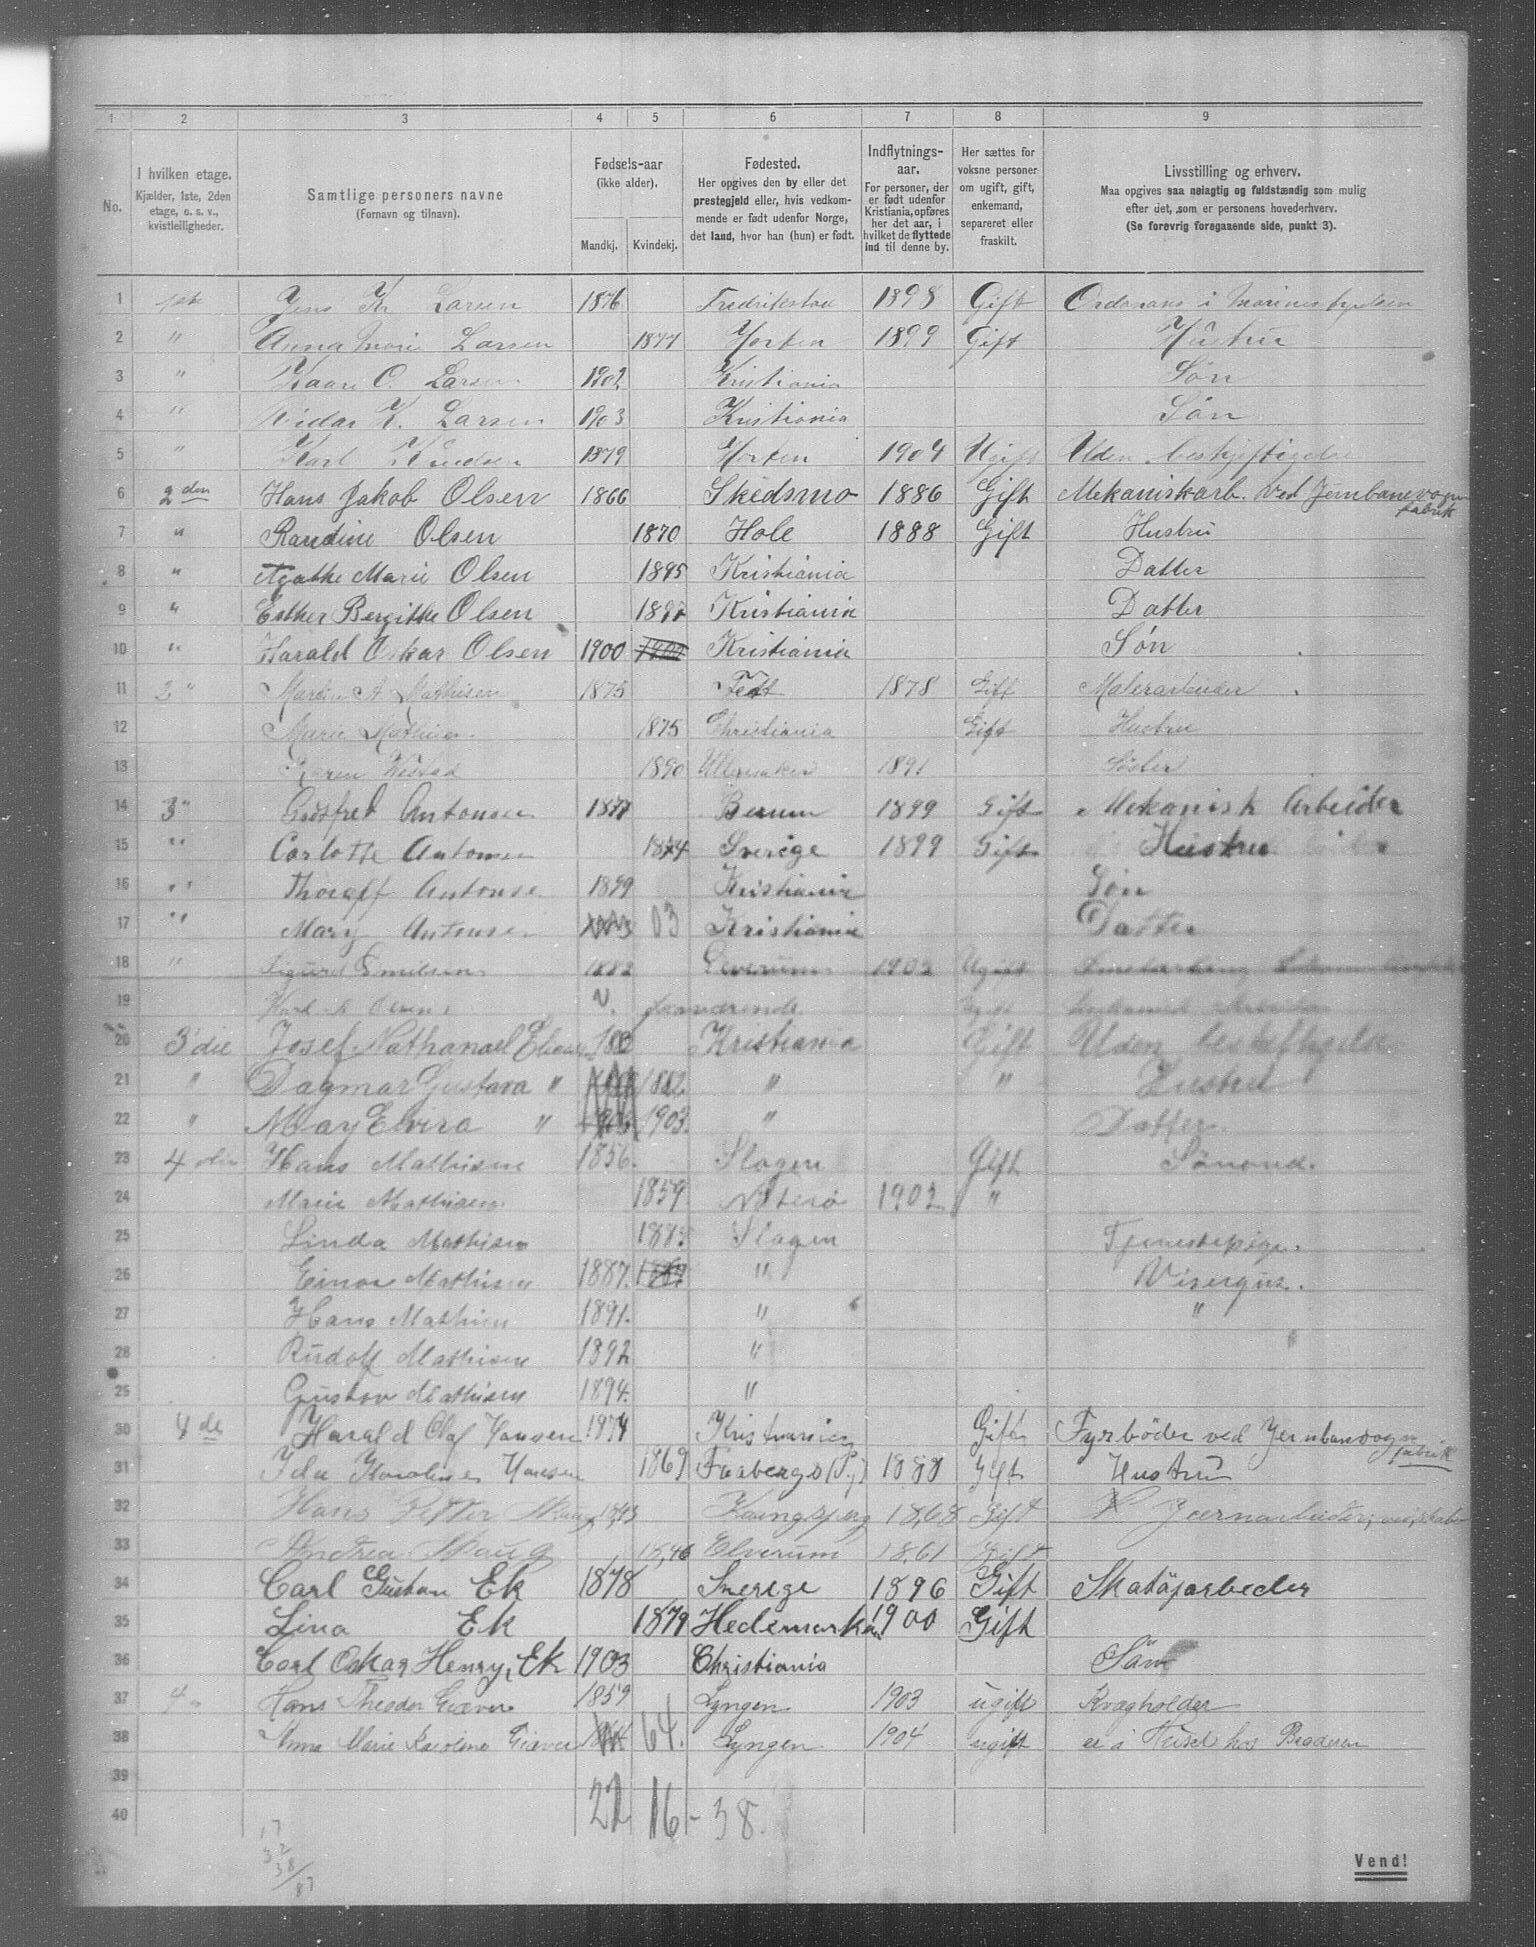 1 2 3 4 5 6 7 8 9
No.
I hvilken etage.
Kjælder, 1ste, 2den
etage, o. s. v.,
kvistleiligheder.
Samtlige personers navne
(Fornavn og tilnavn).
Fødsels-aar
(ikke alder).
Mandkj. Kvindekj.
Fødested.
Her opgives den by eller det
prestegjeld eller, hvis vedkom-
mende er født udenfor Norge,
det land, hvor han (hun) er født.
Indflytnings-
aar.
For personer, der
er født udenfor
Kristiania, opføres
her det aar, i
hvilket de flyttede
ind til denne by.
Her sættes for
voksne personer
om ugift, gift,
enkemand,
separeret eller
fraskilt.
Livsstilling og erhverv.
Maa opgives saa nøiagtig og fuldstændig som mulig
efter det, som er personens hovederhverv.
(Se forøvrig foregaaende side, punkt 3).
1 1ste Jens Kr. Larsen 1876 Fredrikstad 1898 Gift Ordonans i Marinestyrelsen
2 " Anna Marie Larsen 1877 Horten 1899 Gift Hustru
3 " Kaare O. Larsen 1902 Kristiania Søn
4 " Vidar K. Larsen 1903 Kristiania Søn
5 " Karl Knudsen 1879 Horten 1904 Ugift Uden beskjeftigelse
6 2den Hans Jakob Olsen 1866 Skedsmo 1886 Gift Mekaniskarb. ved Jernbanevogn
fabrik
7 " Randine Olsen 1870 Hole 1888 Gift Hustru
8 " Agathe Marie Olsen 1895 Kristiania Datter
9 " Esther Bergitte Olsen Kristiania Datter
10 " Harald Oskar Olsen 1900 Kristiania Søn
11 2 " Martin A Mathisen 1875 Fet 1878 Gift Malerarbeider
12 Marie Mathisen 1875 Christiania Gift Hustru
13 Karen 1890 Ullensaker 1891 Søster
14 3 " Gotfred Antonsen 1877 Berum 1899 Gift Mekanisk Arbeider
15 " Carlotte Antonsen 1874 Sverige 1899 Gift Hustru
16 " Thoralf Antonse 1899 Kristiania Søn
17 " Mary Antonsen 03 Kristiania Datter
18 " Sigurd Emilsen 1882 Elverum 1902 Ugift
19 fraværende Ugift
20 3'die Josef Nathanael Kristiania Gift Uden beskeftigelse
21 " Dagmar Gustava " 1882 " " Hustru
22 " May Elvira " 1903 " Datter
23 4 Hans Mathisen 1856 Slagen Gift Sömand.
24 Marie Mathisen 1859 Nøterø 1902 "
25 Linda Mathisen Slagen Tjenestepige.
26 Einar Mathisen 1887 " Visergut.
27 Hans Mathisen 1891 " "
28 Rudolf Mathisen 1892 " "
29 Gustav Mathisen 1894 "
30 4de Harald Olaf Hansen 1874 Kristiania Gift Fyrbøder ved Jernbanevogn
fabrik
31 Ida Karoline Hansen 1869 1888 Gift Hustru
32 Hans Petter Haug Kongsberg 1868 Gift
33 Andrea Haug 1846 Elverum 1861 Gift
34 Carl Gustav Ek 1878 Sverege 1896 Gift Skotöjarbeder
35 Lina Ek 1879 Hedemarken 1900 Gift
36 Carl Oskar Henry, Ek 1903 Christiania Sön
37 4 " Hans Theodor Giæver 1859 Lyngen 1903 ugift Kvægholder
38 Anna Marie Karoline Giæver 64. Lyngen 1904 ugift er i Huset hos Broderen
39
40 22 16 - 38.
17
32
38
87
Vend!